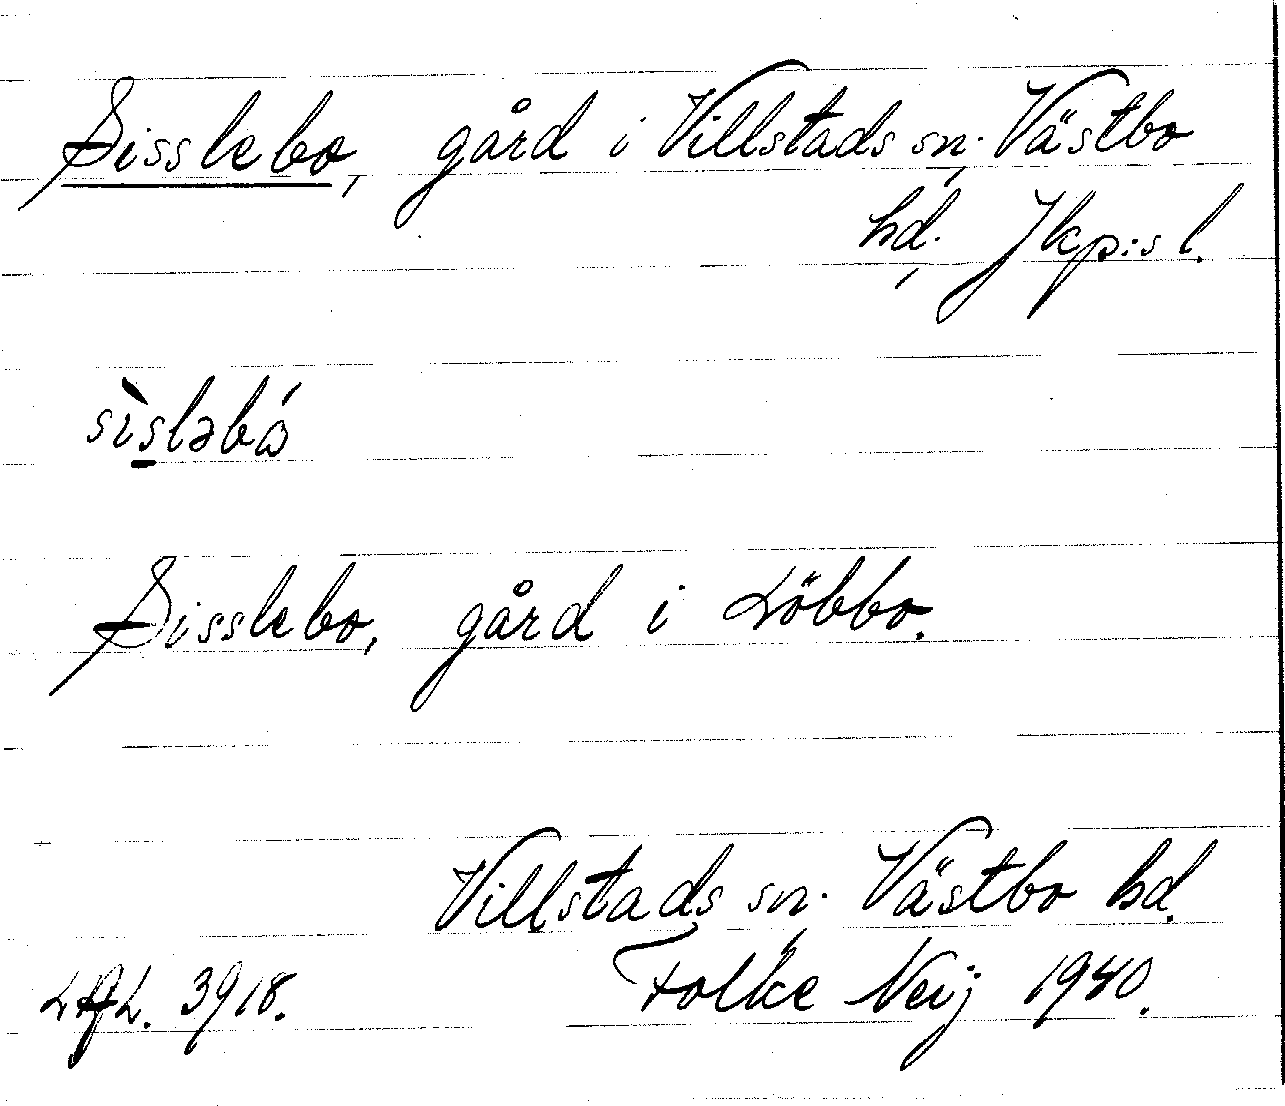 Sisslebo, gård i Villstads sn. Västbo
hd. Jkp:s l.
sìsləbó
Sisslebo, gård i Löbbo.
Villstads sn. Västbo hd.
3918. Folke Neij 1940.